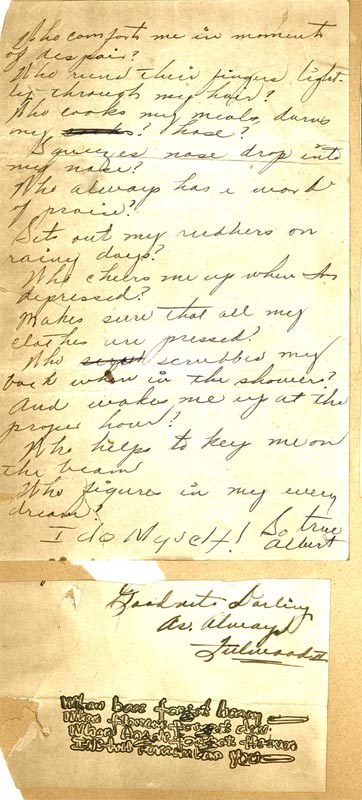 Who comforts me in moments
of despair?
Who runs their fingers light-
ly through my hair?
Who cooks my meals, darns
my hose?
Squeezes nose drop into
my nose?
Who always has a word
of praise?
Sets out my rubbers on
rainy days?
Who cheers me up when Im
depressed?
Makes sure that all my
clothes are pressed?
Who scrubbed my
back when in the shower?
And wakes me up at the
proper hour?
Who helps to key me on
the beam
Who figures in my every
dream?
I do Myself! So true
Albert
Goodnite Darling
As. Always
When bees forget honey
When
When
I Will remember You